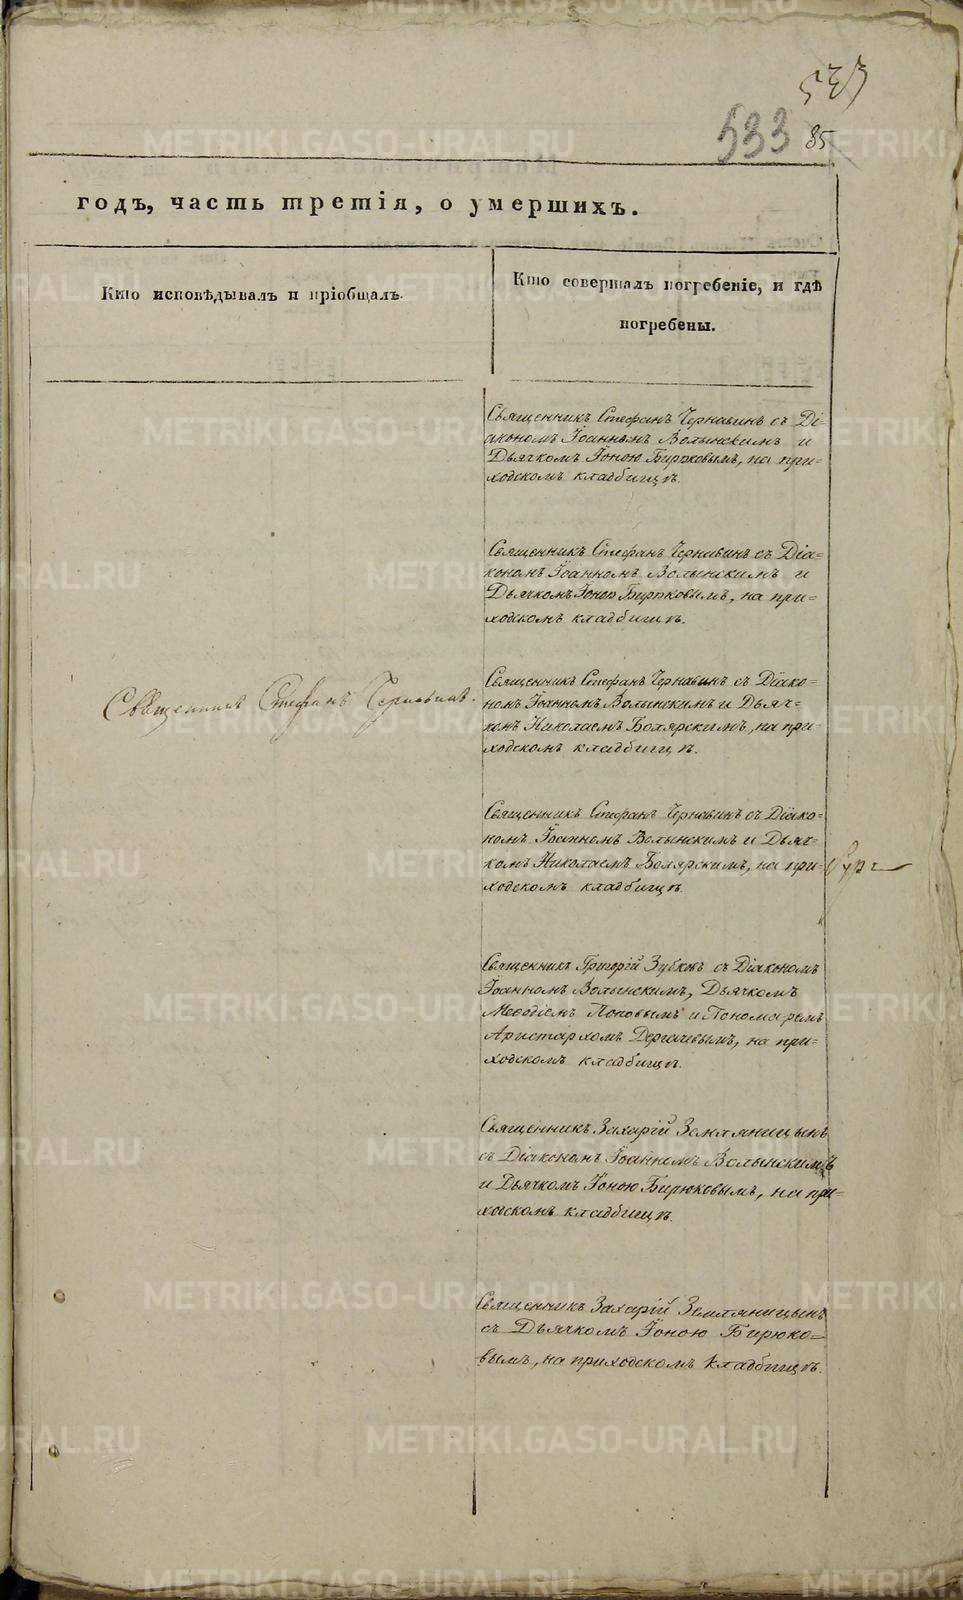 533
85
годъ, часть третія, о умершихъ.
Кто исповѣдывалъ и пріобщалъ.
Кто совершалъ погребеніе, и гдѣ
погребены.
Священникъ Стефанъ Чернавинъ съ Ді-
акономъ Іоанномъ Волынскимъ и
Дьячкомъ Іоною Бирюковымъ, на при=
ходскомъ кладбищѣ.
Священникъ Стефанъ Чернавинъ съ Діа=
кономъ Іоанномъ Волынскимъ и
Дьячкомъ Іоною Бирюковымъ, на при=
ходскомъ кладбищѣ.
Священникъ Стефанъ Чернавинъ.
Священникъ Стефанъ Чернавинъ съ Діако=
номъ Іоанномъ Волынскимъ и Дьяч=
комъ Николаемъ Болярскимъ, на при=
ходскомъ кладбищѣ.
Священникъ Стефанъ Чернавинъ съ Діако=
номъ Іоанномъ Волынскимъ и Дьяч=
комъ Николаемъ Болярскимъ, на при=
ходскомъ кладбищѣ.
Священникъ Григорій Зубковъ съ Діакономъ
Іоанномъ Волынскимъ, Дьячкомъ
Меѳодіемъ Поповымъ и Пономаремъ
Аристархомъ Дергачевымъ, на при=
ходскомъ кладбищѣ.
Священникъ Захарій Земляницынъ
съ Діакономъ Іоанномъ Волынскимъ
и Дьячкомъ Іоною Бирюковымъ, на при=
ходскомъ кладбищѣ.
Священникъ Захарій Земляницынъ
съ Дьячкомъ Іоною Бирюко=
вымъ, на приходскомъ кладбищѣ.
METRIKI.GASO-URAL.RU